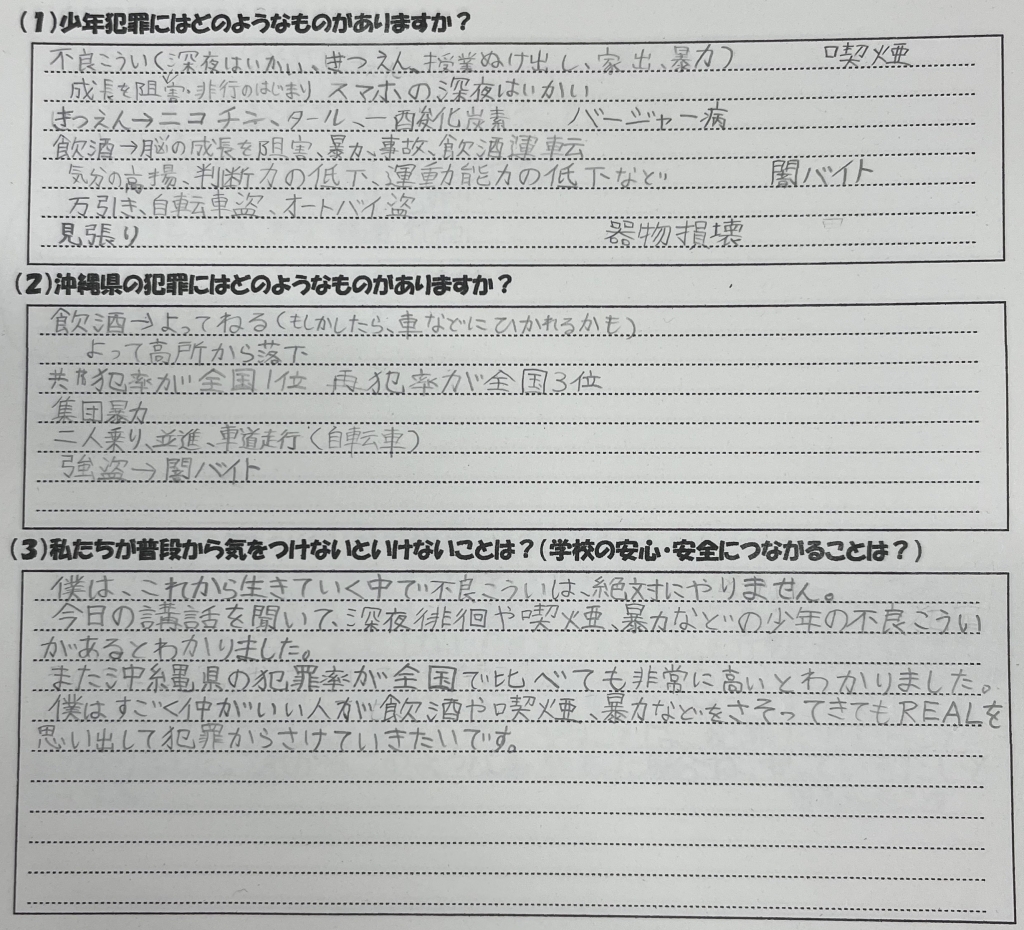 (1)少年犯罪にはどのようなものがありますか？
不良こうい(深夜はいかい、きつえん、授業ぬけ出し、家出、暴力)　喫煙
成長を阻害・非行のはじまり スマホの深夜はいかい
きつえん→ニコチン、タール、一酸化炭素　バージャー病
飲酒→脳の成長を阻害、暴力、事故、飲酒運転
気分の高揚、判断力の低下、運動能力の低下など　闇バイト
万引き、自転車盗、オートバイ盗
見張り　器物損壊
(2)沖縄県の犯罪にはどのようなものがありますか？
飲酒→よってねる(もしかしたら、車などにひかれるかも)
よって高所から落下
共犯率が全国1位 再犯率が全国3位
集団暴力
二人乗り、並進、車道走行(自転車)
強盗→闇バイト
(3)私たちが普段から気をつけないといけないことは？(学校の安心・安全につながることは？)
僕は、これから生きていく中で不良こういは、絶対にやりません。
今日の講話を聞いて、深夜徘徊や喫煙、暴力などの少年の不良こうい
があるとわかりました。
また沖縄県の犯罪率が全国で比べても非常に高いとわかりました。
僕はすごく仲がいい人が飲酒や喫煙、暴力などをさそってきてもREALを
思い出して犯罪からさけていきたいです。